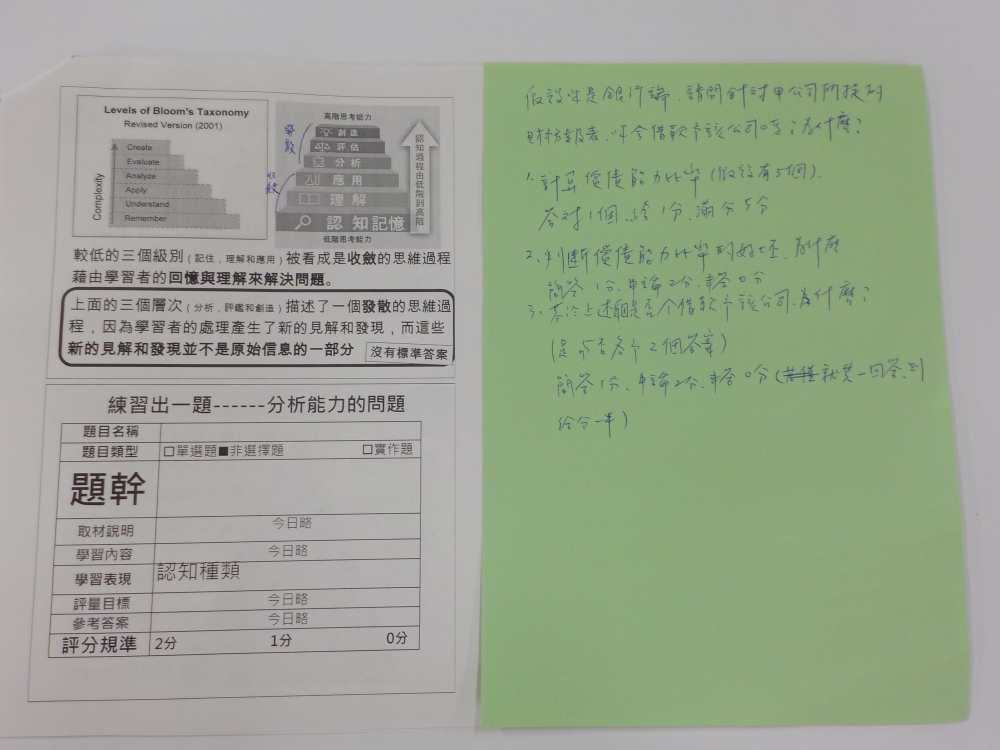 Levels of Bloom's Taxonomy
Revised Version (2001)
Complexity
Create
Evaluate
Analyze
Apply
Understand
Remember
高階思考能力
創造
評估
分析
應用
理解
認知記憶
低階思考能力
認知過程由低階到高階
發散
收斂
較低的三個級別(記住,理解和應用)被看成是收斂的思維過程
藉由學習者的回憶與理解來解決問題。
上面的三個層次(分析,評鑑和創造)描述了一個發散的思維過
程,因為學習者的處理產生了新的見解和發現,而這些
新的見解和發現並不是原始信息的一部分 沒有標準答案
練習出一題------分析能力的問題
題目名稱
題目類型 □單選題■非選擇題 □實作題
題幹
取材說明 今日略
學習內容 今日略
學習表現 認知種類
評量目標 今日略
參考答案 今日略
評分規準 2分 1分 0分
假設你是銀行端、請問針對甲公司所提的
財務報表、你會借款予該公司嗎?為什麼?
1. 計算償債能力比率(假設有5個).
答對1個、給1分、滿分5分
2. 判斷償債能力比率的好坏、為什麼
簡答1分、申論2分、未答0分
3. 基於上述 是否會借款予該公司、為什麼?
(是與否各予2個答案)
簡答1分、申論2分、未答0分( 就其一回答、則
給分一半)